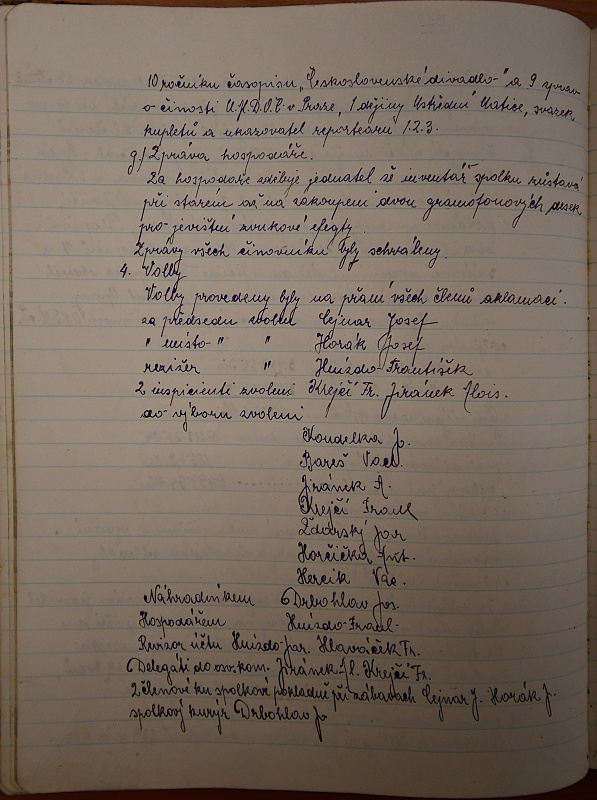 10 ročníku časopisu „Československé divadlo" a 9 zpráv
o činosti Ú.M.D.O.Č. v Praze, 1 dějiny Ústřední Matice, svazek
kupletů a ukazovatel reportearu 1.2.3.
g.) Zpráva hospodáře.
Za hospodáře sděluje jednatel že inventář spolku zůstává
při starém až na zakoupení dvou gramofonových desek
pro jevištní zvukové efegty.
Zprávy všech činovníků byly schváleny.
4. Volby
Volby provedeny byly na přání všech členů aklamací.
za předsedu zvolen Cejnar Josef
" místo- " " Horák Josef
režizér " Hnízdo František
2 inspicienti zvoleni Krejčí Fr. Jiránek Alois.
do výboru zvoleni
Koudelka Jo.
Bareš Vacl.
Jiránek A.
Krejčí Frant
Žďárský Jar
Horčička Ant.
Hercík Vác.
Náhradníkem Drbohlav Jos.
Hospodářem Hnízdo Frant.
Revizor účtu Hnízdo Jar. Hlaváček Fr.
Delegáti do osv. kom. Jiránek Al. Krejčí Fr.
2 členové ku spolkové pokladně při zábavách Cejnar J. Horák J.
spolkový kurýr Drbohlav Jo